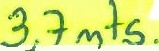 3.7 mts.